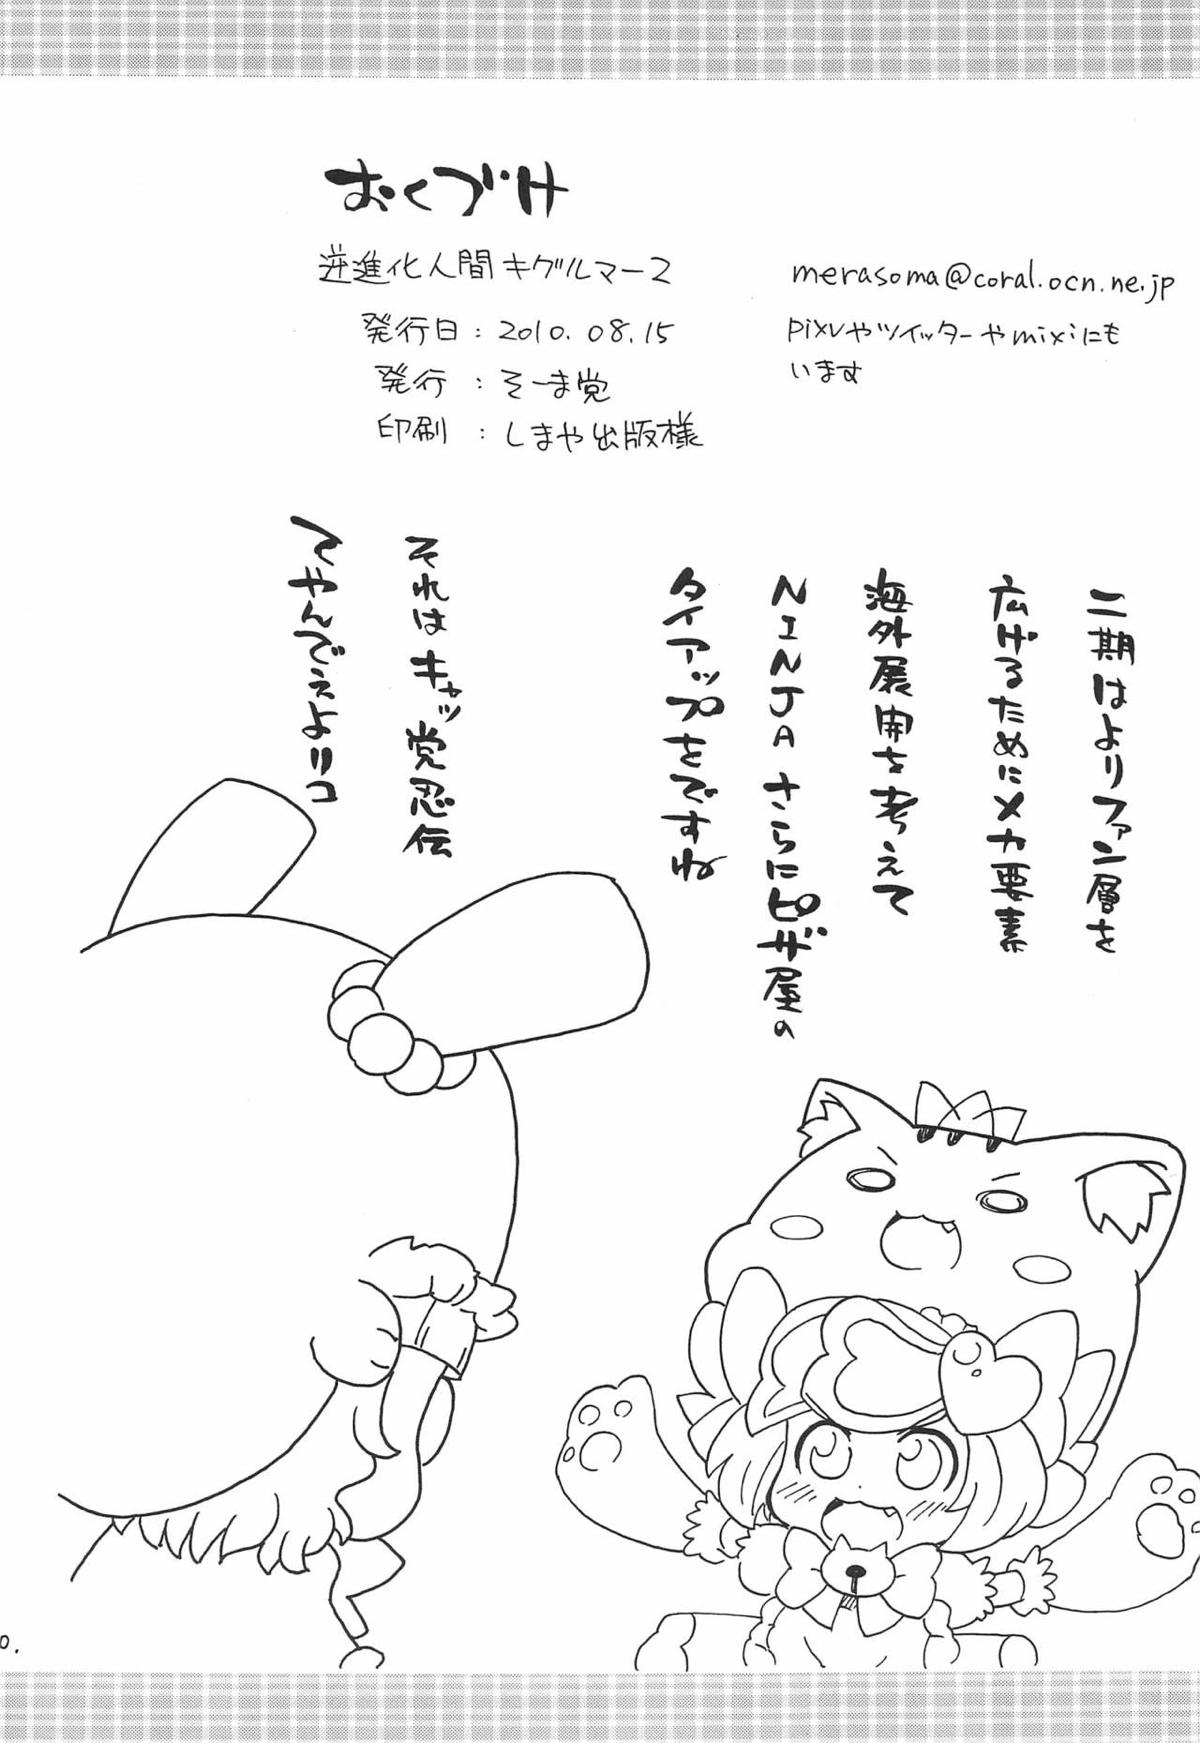 おくづけ
逆進化人間キグルマー2
発行日：2010.08.15
発行：そーま党
印刷：しまや出版様
merasoma@coral.ocn.ne.jp
pixivやツイッターやmixiにも
います
二期はよりファン層を
広げるためにメカ要素
海外展開を考えて
NINJAさらにピザ屋の
タイアップをですね
それはキャッ党忍伝
てやんでぇよリコ
0.